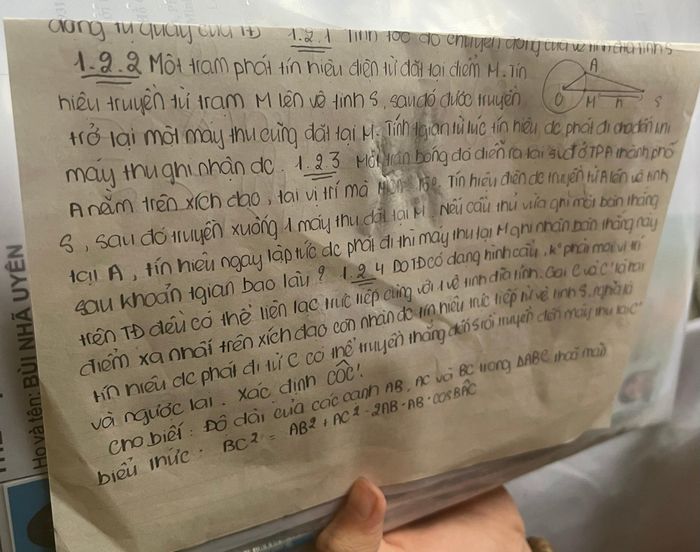 động tự quay của TĐ 1.2.1 Tính tốc độ chuyển động của vệ tinh địa tĩnh S
1.2.2 Một trạm phát tín hiệu điện từ đặt tại điểm M. Tín
hiệu truyền từ trạm M lên vệ tinh S, sau đó được truyền
trở lại một máy thu cũng đặt tại M. Tính tgian từ lúc tín hiệu đc phát đi cho đến khi
máy thu ghi nhận đc. 1.2.3 Một trận bóng đá diễn ra tại svđ ở TPA thành phố
A nằm trên xích đạo, tại vị trí mà Tín hiệu điện đc truyền từ A lên vệ tinh
S, sau đó truyền xuống 1 máy thu đặt tại M. Nếu cầu thủ vừa ghi một bàn thắng
tại A, tín hiệu ngay lập tức đc phát đi thì máy thu tại M ghi nhận bàn thắng này
sau khoản tgian bao lâu? 1.2.4 Do TĐ có dạng hình cầu, k° phải mọi vị trí
trên TĐ đều có thể liên lạc trực tiếp cùng với 1 vệ tinh địa tĩnh. Gọi C và C' là hai
điểm xa nhất trên xích đạo còn nhận đc tín hiệu trực tiếp từ vệ tinh S, nghĩa là
tín hiệu đc phát đi từ C có thể truyền thẳng đến S rồi truyền đến máy thu tại C'
và ngược lại. Xác định CÔC'.
Cho biết: Độ dài của các cạnh AB, AC và BC trong ΔABC thoả mãn
biểu thức: BC² = AB² + AC² - 2AB · AB · cosBÂC
A
O
M
h
S
Họ và tên: BÙI NHÃ UYÊN